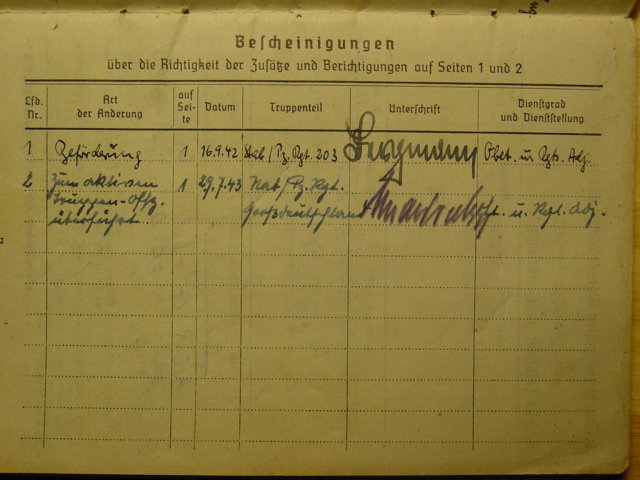 Bescheinigungen
über die Richtigkeit der Zusätze und Berichtigungen auf Seiten 1 und 2
Lfd. Nr. Art der Änderung auf Seite Datum Truppenteil Unterschrift Dienstgrad und Dienststellung
1 Beförderung 1 16.9.42 Stab/Pz. Rgt. 203 Bergmann
2 zum aktiven 1 29.7.43 /Pz. Rgt.
Truppen-Offz. Großdeutschland u. Rgt. Adj.
überführt.